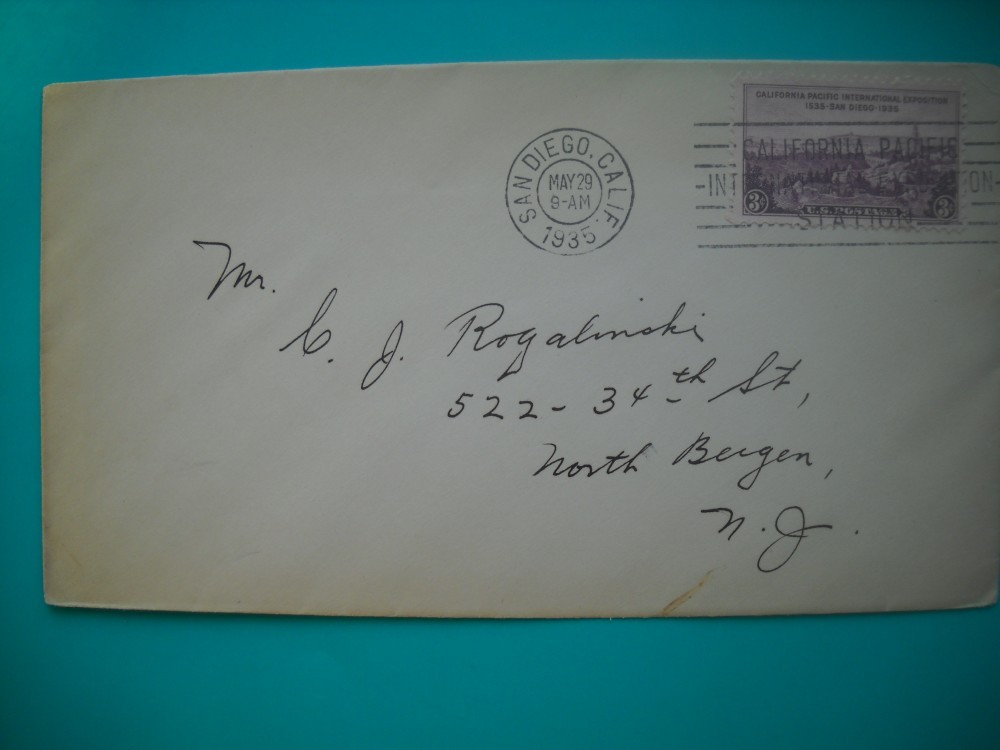 CALIFORNIA PACIFIC INTERNATIONAL EXPOSITION
1535·SAN DIEGO·1935
3¢ U.S. POSTAGE 3¢
CALIFORNIA PACIFIC
INTERNATIONAL EXPOSITION
STATION
SAN DIEGO, CALIF.
MAY 29
9-AM
1935
Mr.
C. J. Rogalinski
522 - 34th St,
North Bergen,
N. J.